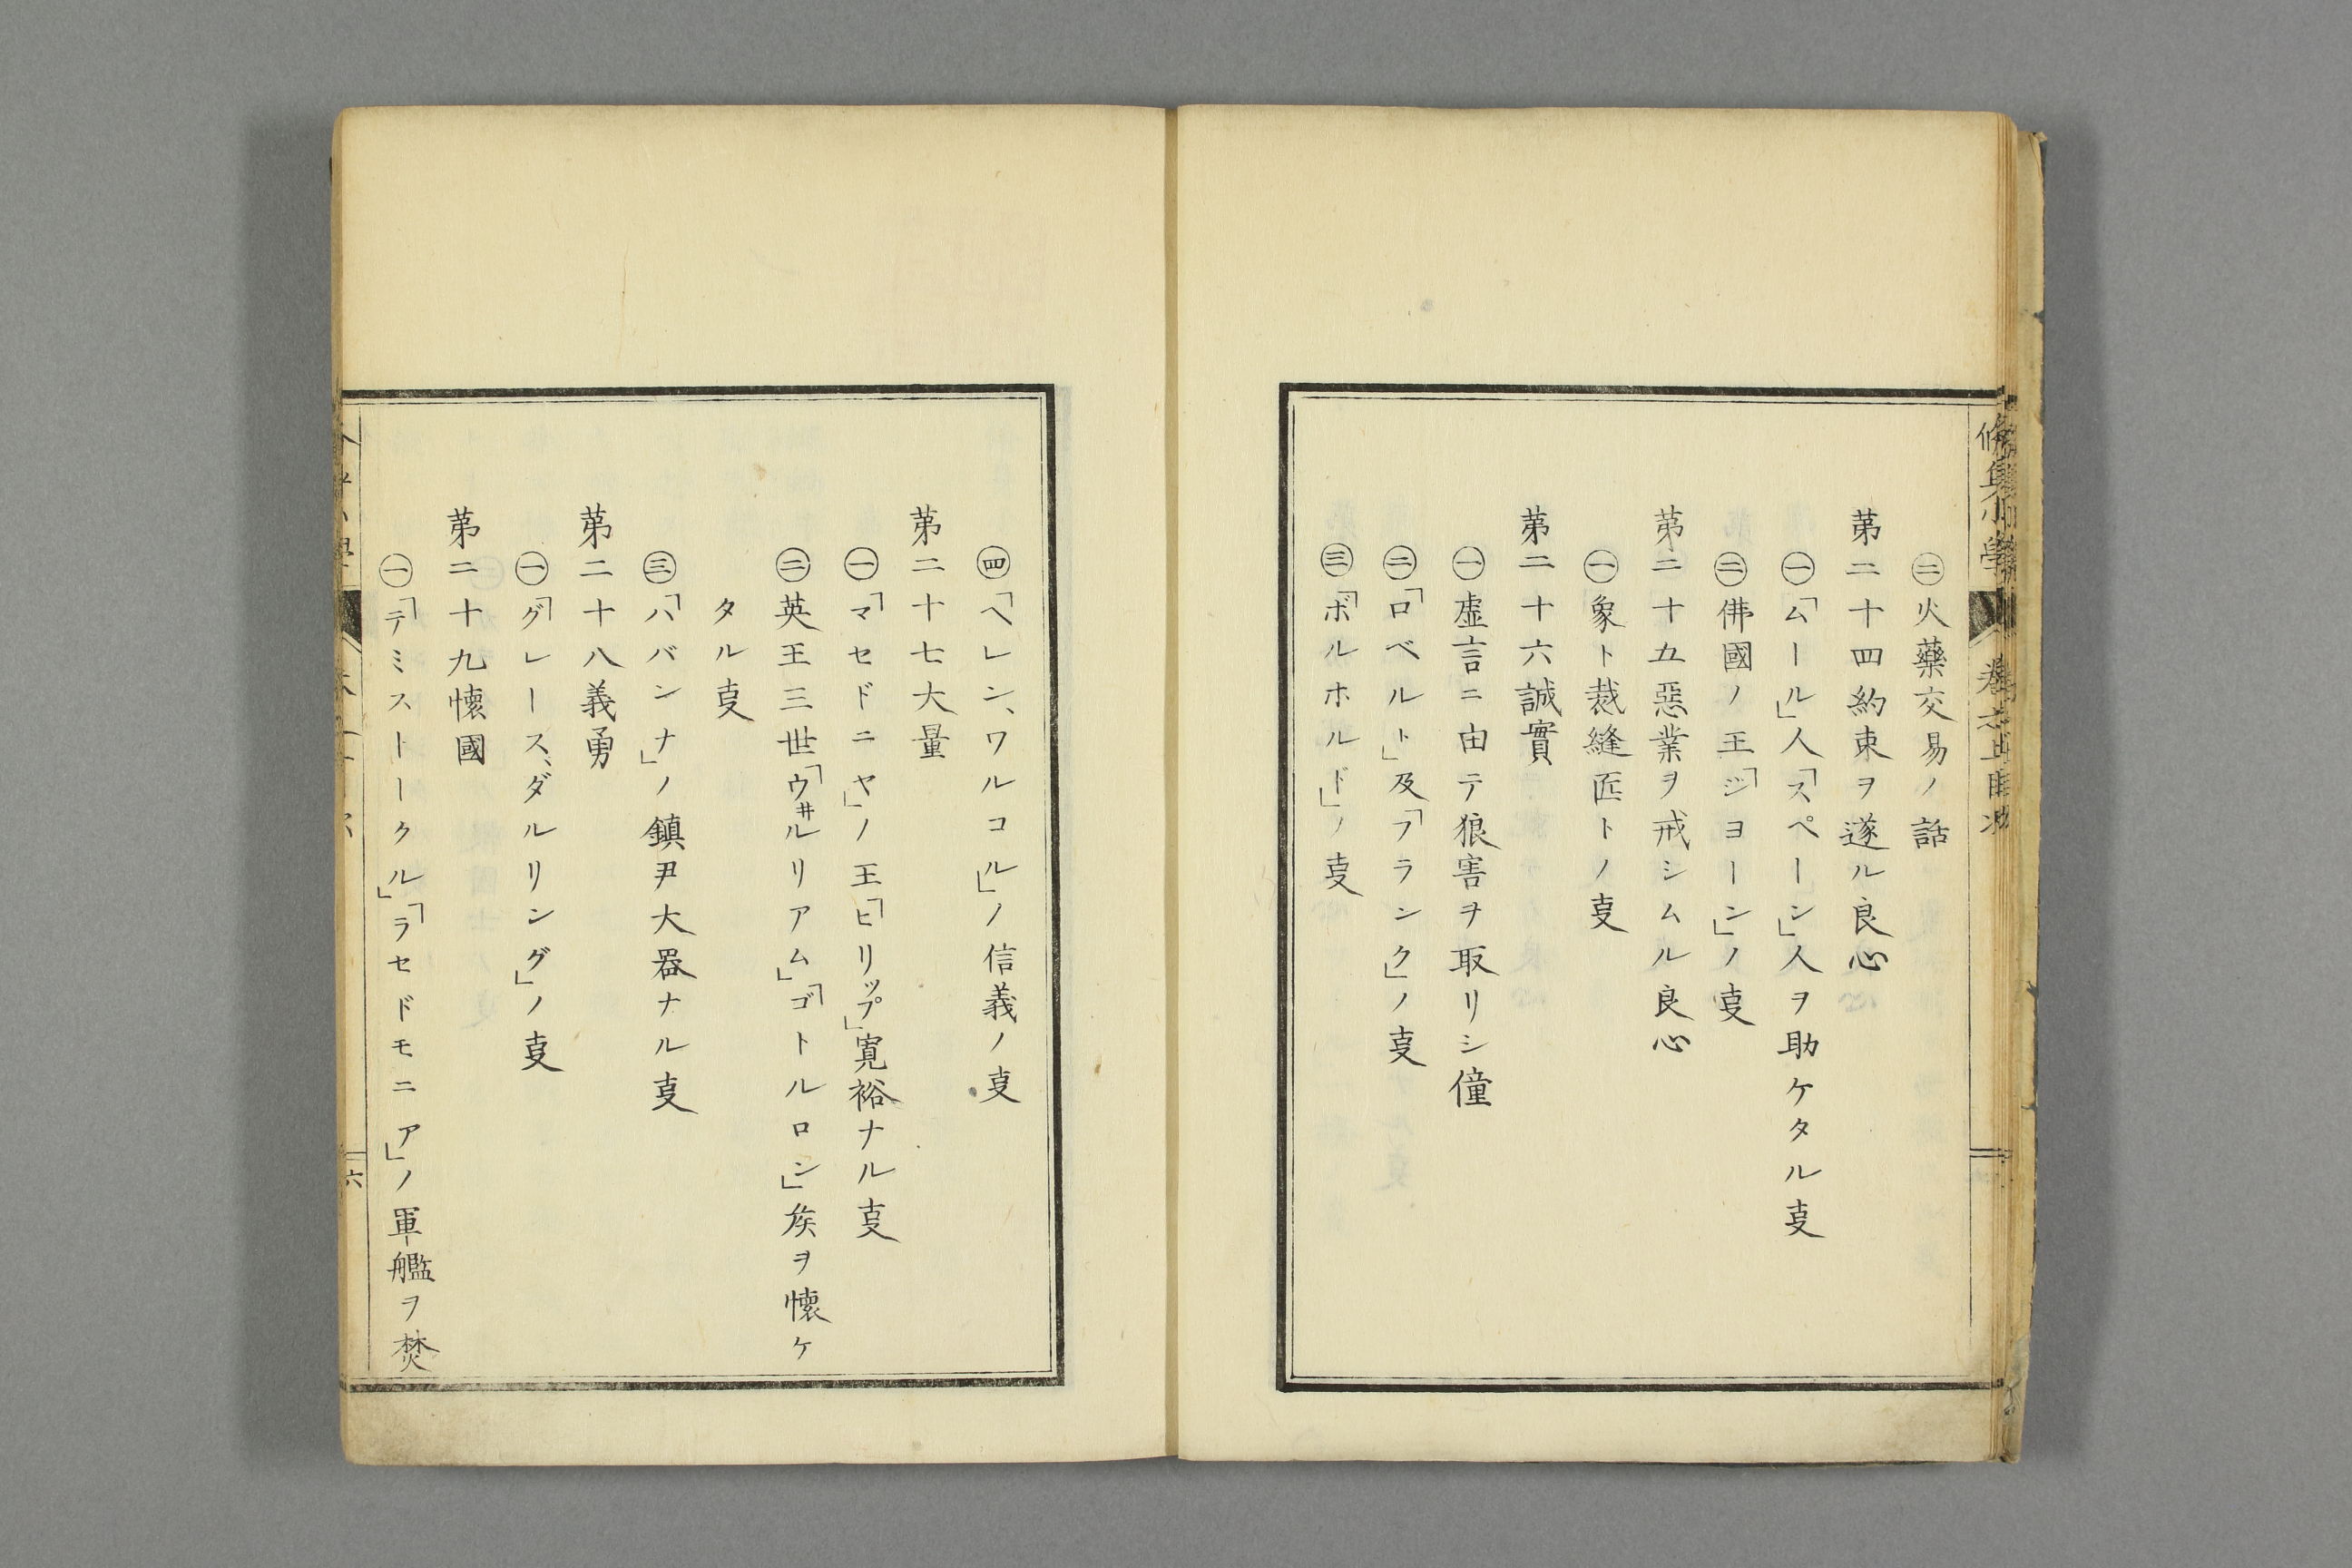 ㊁火藥交易ノ話
第二十四約束ヲ遂ル良心
㊀「ムール」人「スペーン」人ヲ助ケタル㕝
㊁佛國ノ王「ジヨーン」ノ㕝
第二十五惡業ヲ戒シムル良心
㊀象ト裁縫匠トノ㕝
第二十六誠實
㊀虚言ニ由テ狼害ヲ取リシ僮
㊁「ロベルト」及「フランク」ノ㕝
㊂「ボルホルド」ノ㕝
㊃「ヘレン、ワルコル」ノ信義ノ㕝
第二十七大量
㊀「マセドニヤ」ノ王「ヒリップ」寛裕ナル㕝
㊁英王三世「ウヰルリアム」「ゴトルロン」矦ヲ懷ケ
タル㕝
㊂「ハバンナ」ノ鎮尹大器ナル㕝
第二十八義勇
㊀「グレース、ダルリング」ノ㕝
第二十九懷國
㊀「テミストークル」「ラセドモニア」ノ軍艦ヲ焚
六